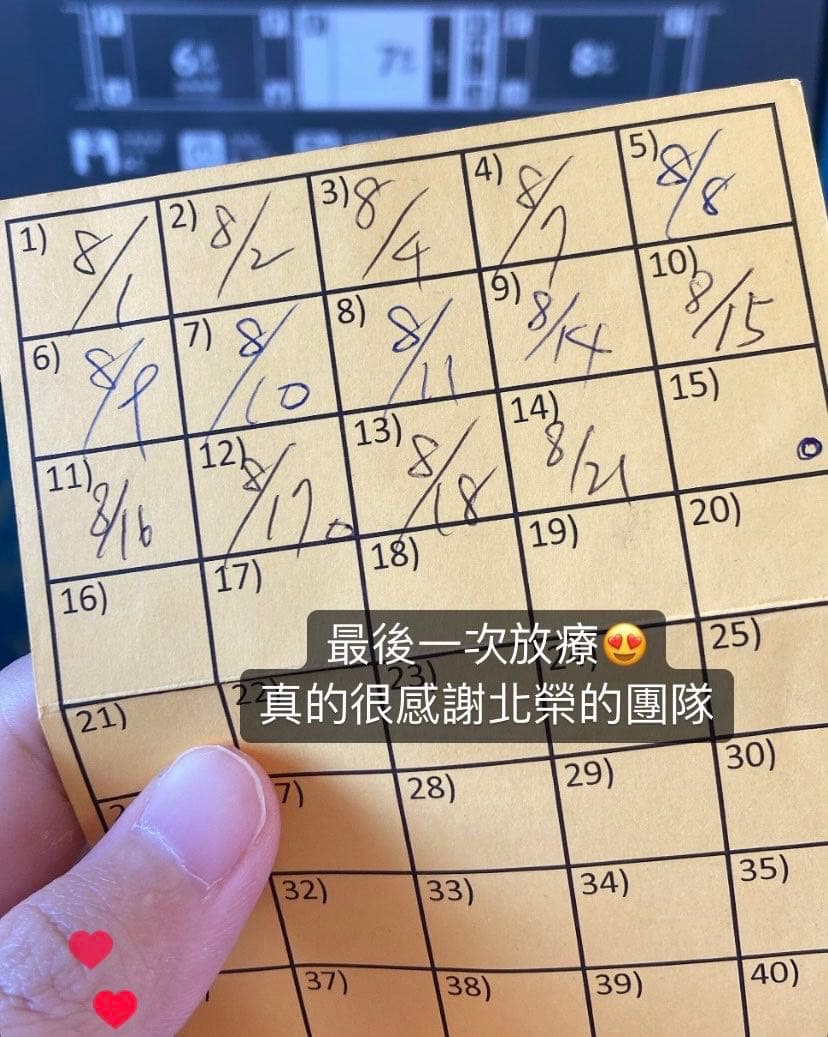 6
7
8
1) 8/1
2) 8/2
3) 8/4
4) 8/7
5) 8/8
6) 8/9
7) 8/10
8) 8/11
9) 8/14
10) 8/15
11) 8/16
12) 8/17
13) 8/18
14) 8/21
15)
16)
17)
18)
19)
20)
最後一次放療😍
真的很感謝北榮的團隊
21)
22)
23)
25)
7)
28)
29)
30)
32)
33)
34)
35)
37)
38)
39)
40)